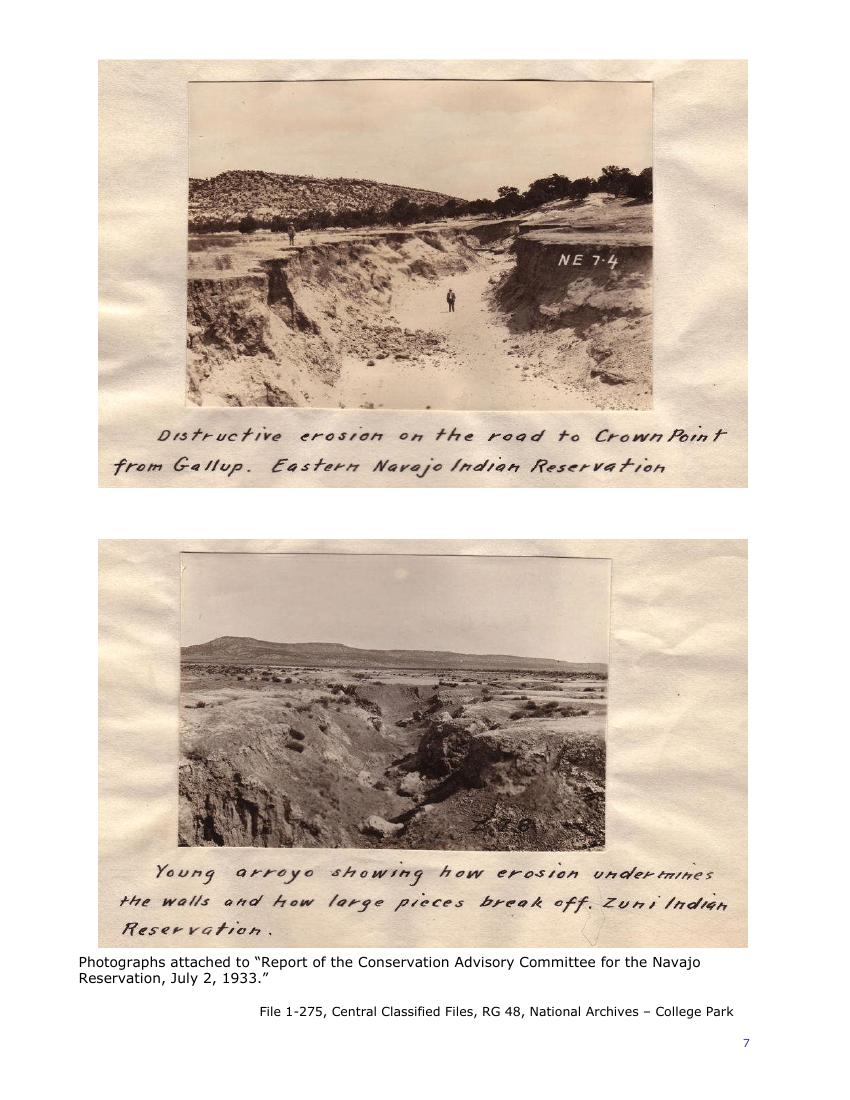 NE 7-4
Distructive erosion on the road to Crown Point
from Gallup. Eastern Navajo Indian Reservation
Young arroyo showing how erosion undermines
the walls and how large pieces break off. Zuni Indian
Reservation.
Photographs attached to “Report of the Conservation Advisory Committee for the Navajo
Reservation, July 2, 1933.”
File 1-275, Central Classified Files, RG 48, National Archives – College Park
7